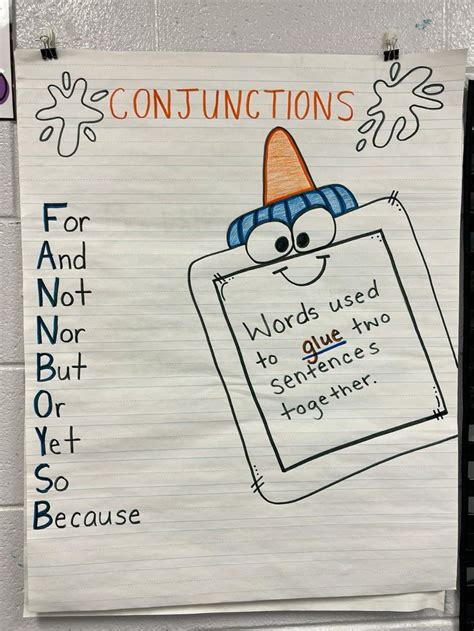 CONJUNCTIONS
For
And
Not
Nor
But
Or
Yet
So
Because
Words used
to glue two
sentences
together.